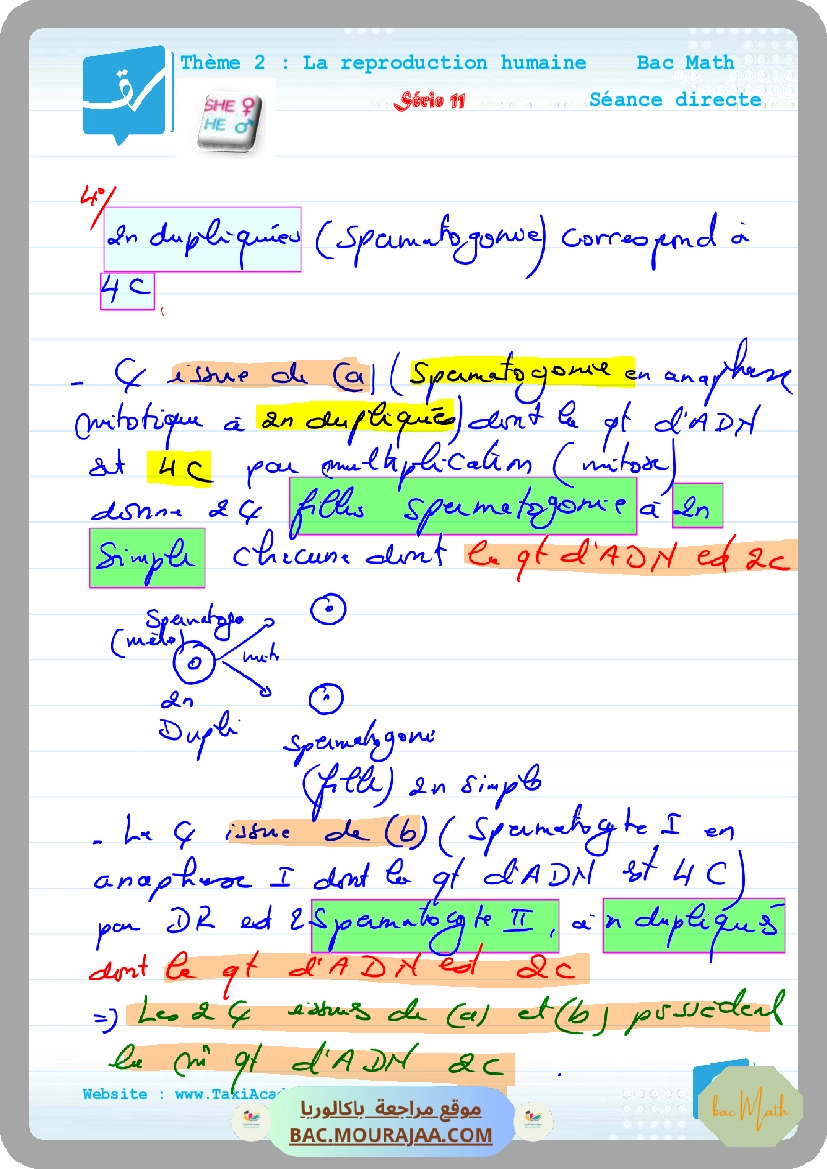 Thème 2 : La reproduction humaine Bac Math
Série 11 Séance directe
SHE ♀
HE ♂
4°/
2n dupliquées (Spermatogonie) correspond à
4C.
- ¢ issue de (a) (Spermatogonie en anaphase
mitotique à 2n dupliqués) dont la qt d'ADN
est 4C par multiplication (mitose)
donne 2 ¢ filles spermatogonie à 2n
Simple chacune dont la qt d'ADN est 2C
Spermatogo
(mère)
mito
2n
Dupli
Spermatogoni
(fille) 2n simple
- La ¢ issue de (b) (Spermatocyte I en
anaphase I dont la qt d'ADN est 4C)
par DR est 2 Spermatocyte II, à n dupliqués
dont la qt d'ADN est 2C
=) Les 2 ¢ issues de (a) et (b) possèdent
la m̂ qt d'ADN 2C.
Website : www.TakiAcad
موقع مراجعة باكالوريا
BAC.MOURAJAA.COM
bac Math